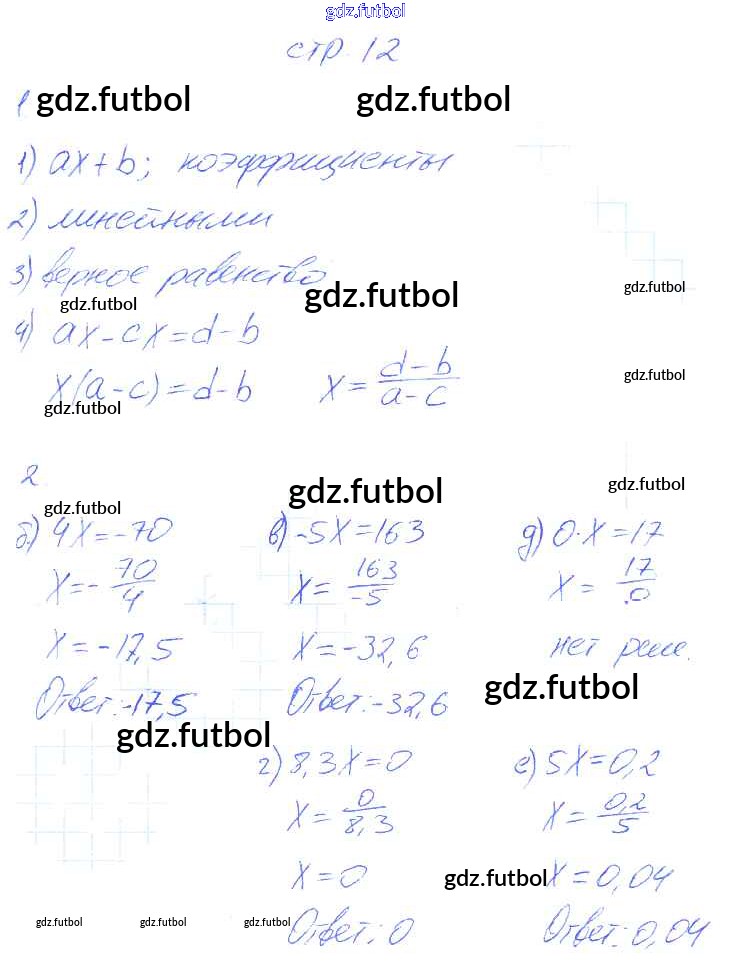 gdz.futbol
стр. 12
1
gdz.futbol gdz.futbol
1) ax+b; коэффициенты
2) линейными
3) верное равенство
gdz.futbol gdz.futbol gdz.futbol
4) ax-cx=d-b
x(a-c)=d-b x= d-b / a-c
gdz.futbol gdz.futbol
2.
gdz.futbol gdz.futbol gdz.futbol
б) 4x=-70
x=- 70/4
x=-17,5
Ответ:-17,5
gdz.futbol
в) -5x=163
x= 163/-5
x=-32,6
Ответ:-32,6
г) 8,3x=0
x= 0/8,3
x=0
Ответ: 0
д) 0·x=17
x= 17/0
нет реш.
gdz.futbol
е) 5x=0,2
x= 0,2/5
gdz.futbol
x=0,04
Ответ: 0,04
gdz.futbol gdz.futbol gdz.futbol